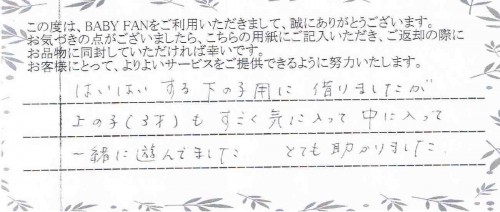 この度は、BABY FANをご利用いただきまして、誠にありがとうございます。
お気づきの点がございましたら、こちらの用紙にご記入いただき、ご返却の際に
お品物に同封していただければ幸いです。
お客様にとって、よりよいサービスをご提供できるように努力いたします。
はいはいする下の子用に借りましたが
上の子(3才)もすごく気に入って中に入って
一緒に遊んでました とても助かりました